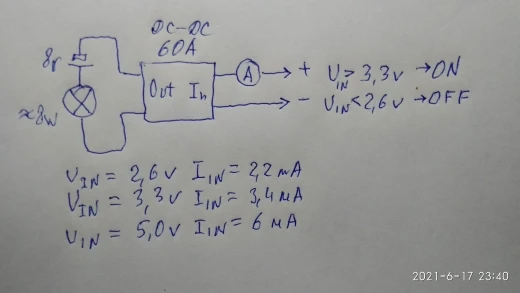 DC-DC
60A
8v
≈8W
Out In
A
+ UIN > 3,3v → ON
- UIN < 2,6v → OFF
UIN = 2,6v IIN = 2,2mA
UIN = 3,3v IIN = 3,4mA
UIN = 5,0v IIN = 6mA
2021-6-17 23:40